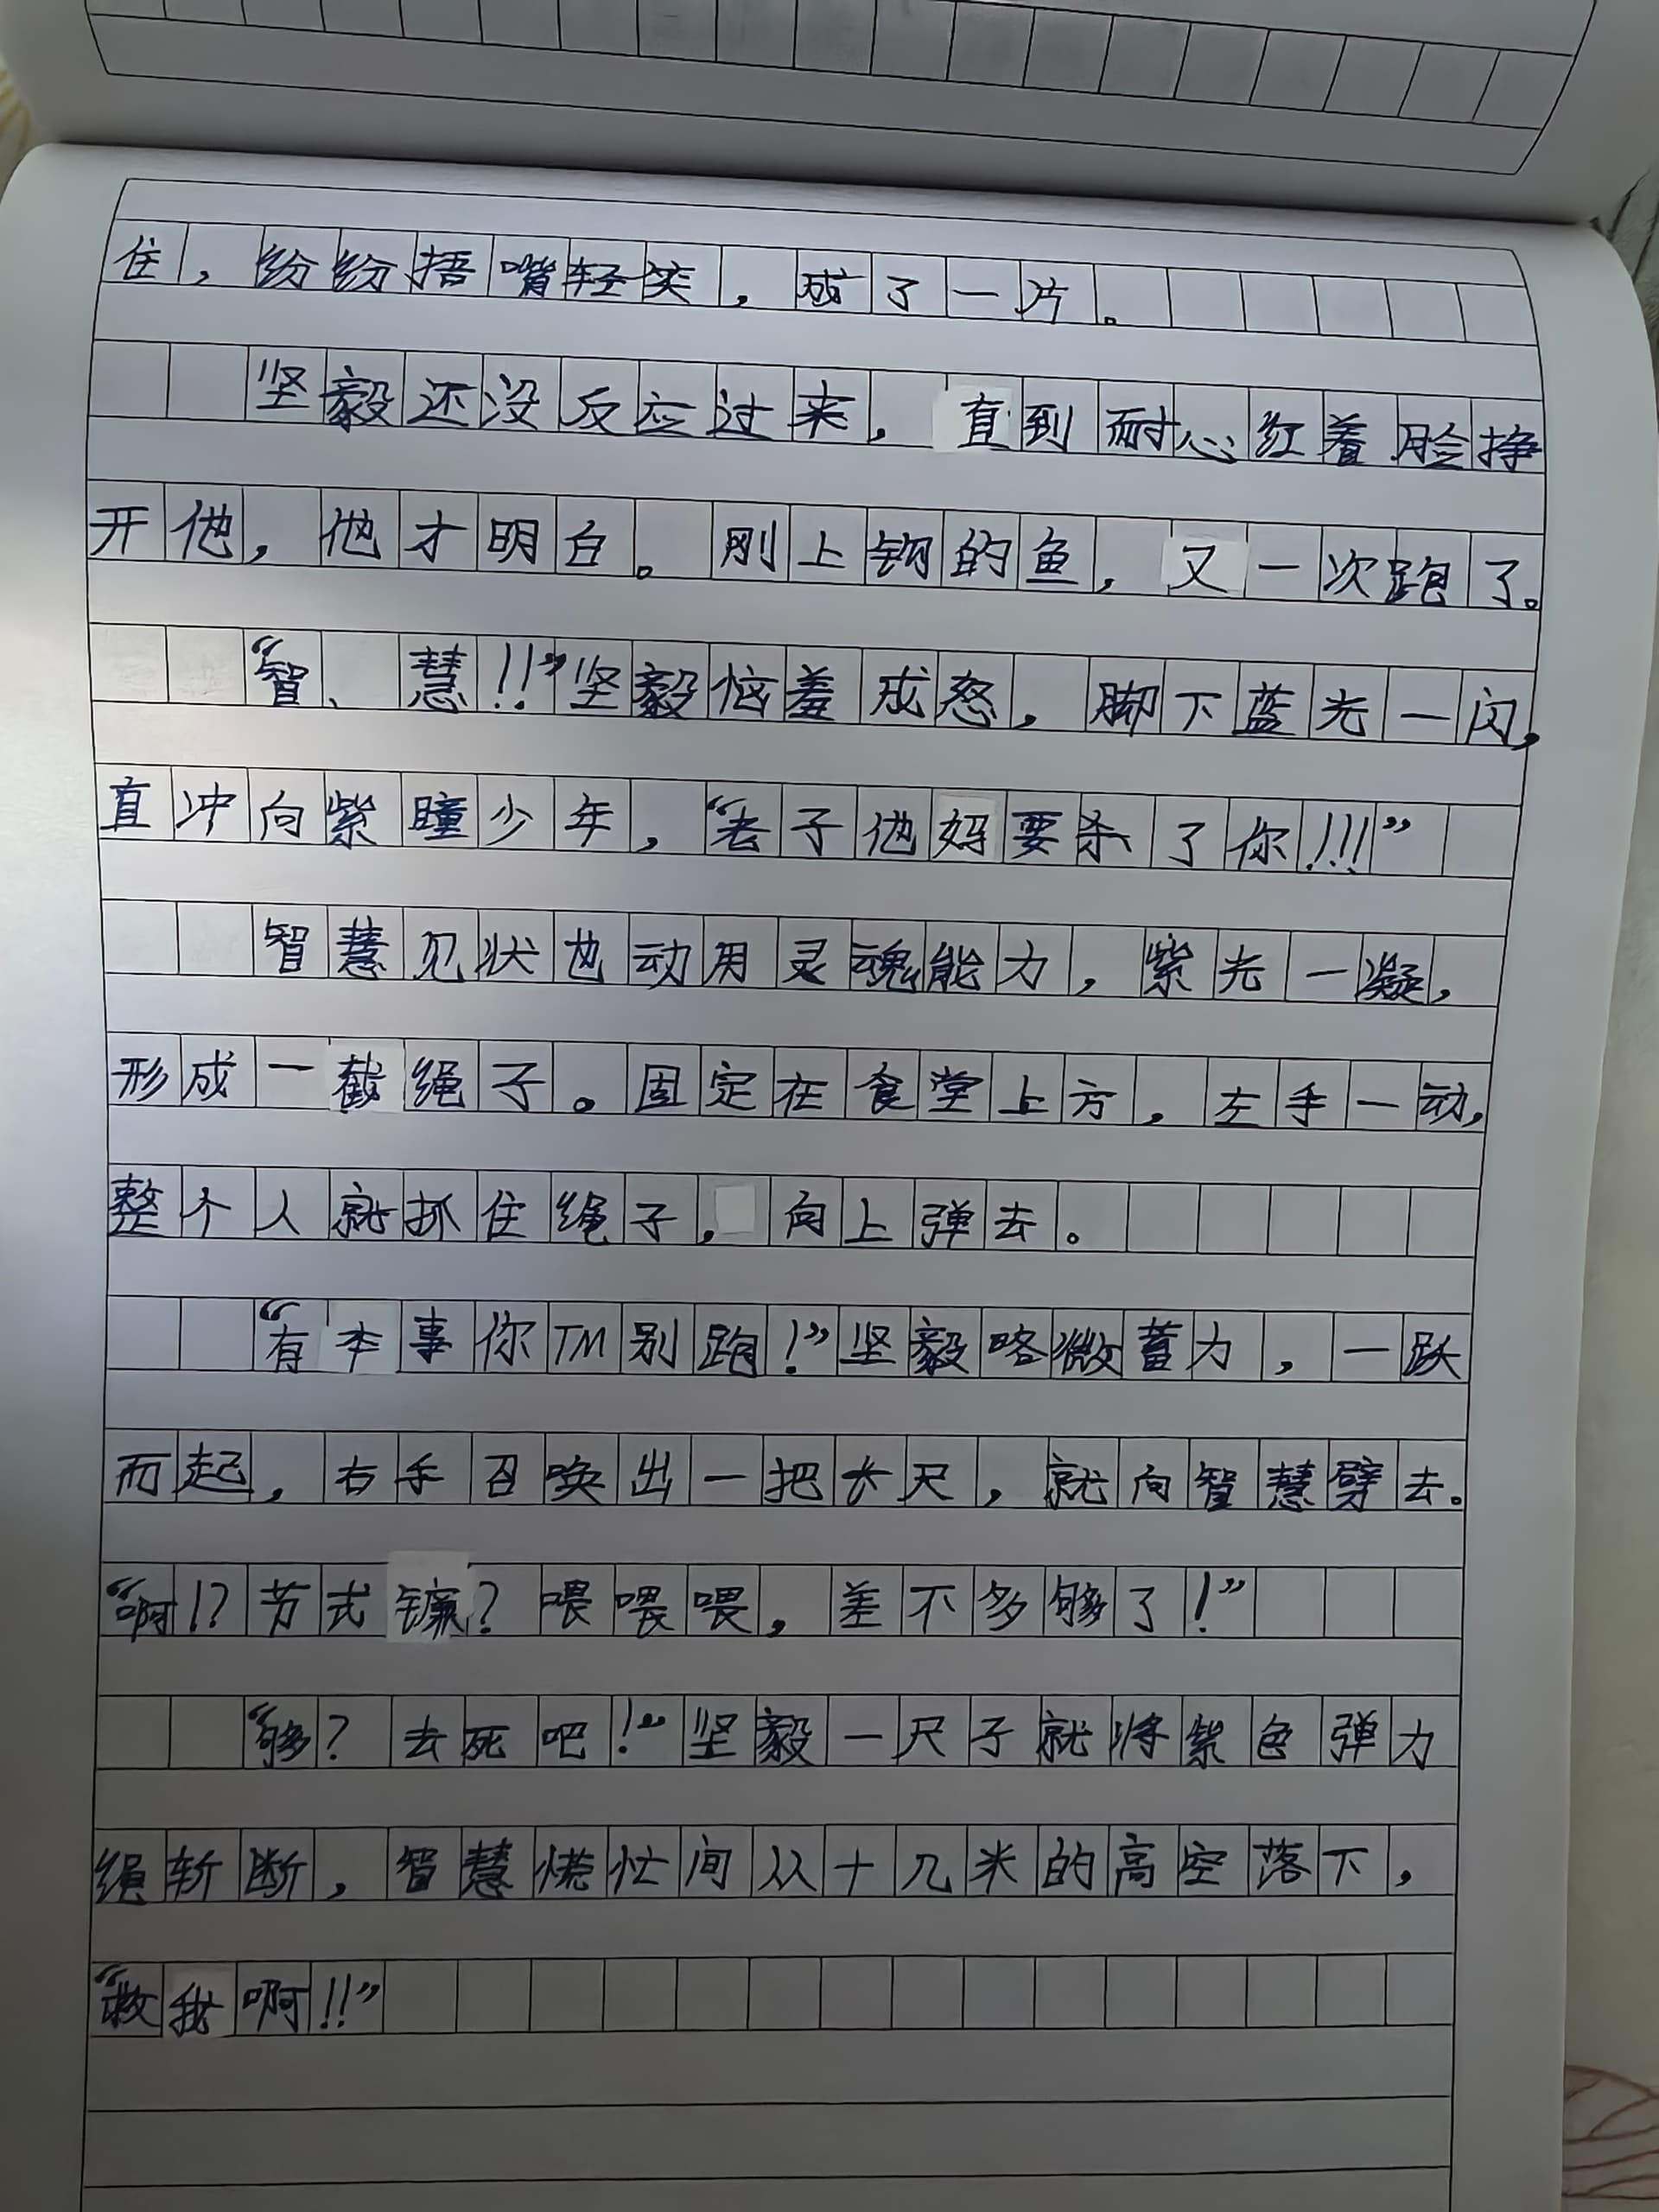 住，纷纷捂嘴轻笑，成了一片。
坚毅还没反应过来，直到耐心红着脸挣
开他，他才明白。刚上钩的鱼，又一次跑了。
“智、慧!!”坚毅恼羞成怒，脚下蓝光一闪，
直冲向紫瞳少年，“老子他妈要杀了你!!!”
智慧见状也动用灵魂能力，紫光一凝，
形成一截绳子。固定在食堂上方，左手一动，
整个人就抓住绳子，向上弹去。
“有本事你TM别跑!”坚毅略微蓄力，一跃
而起，右手召唤出一把长尺，就向智慧劈去。
“啊!?苦式镰?喂喂喂，差不多够了!”
“够?去死吧!”坚毅一尺子就将紫色弹力
绳斩断，智慧慌忙间从十几米的高空落下，
“救我啊!!”